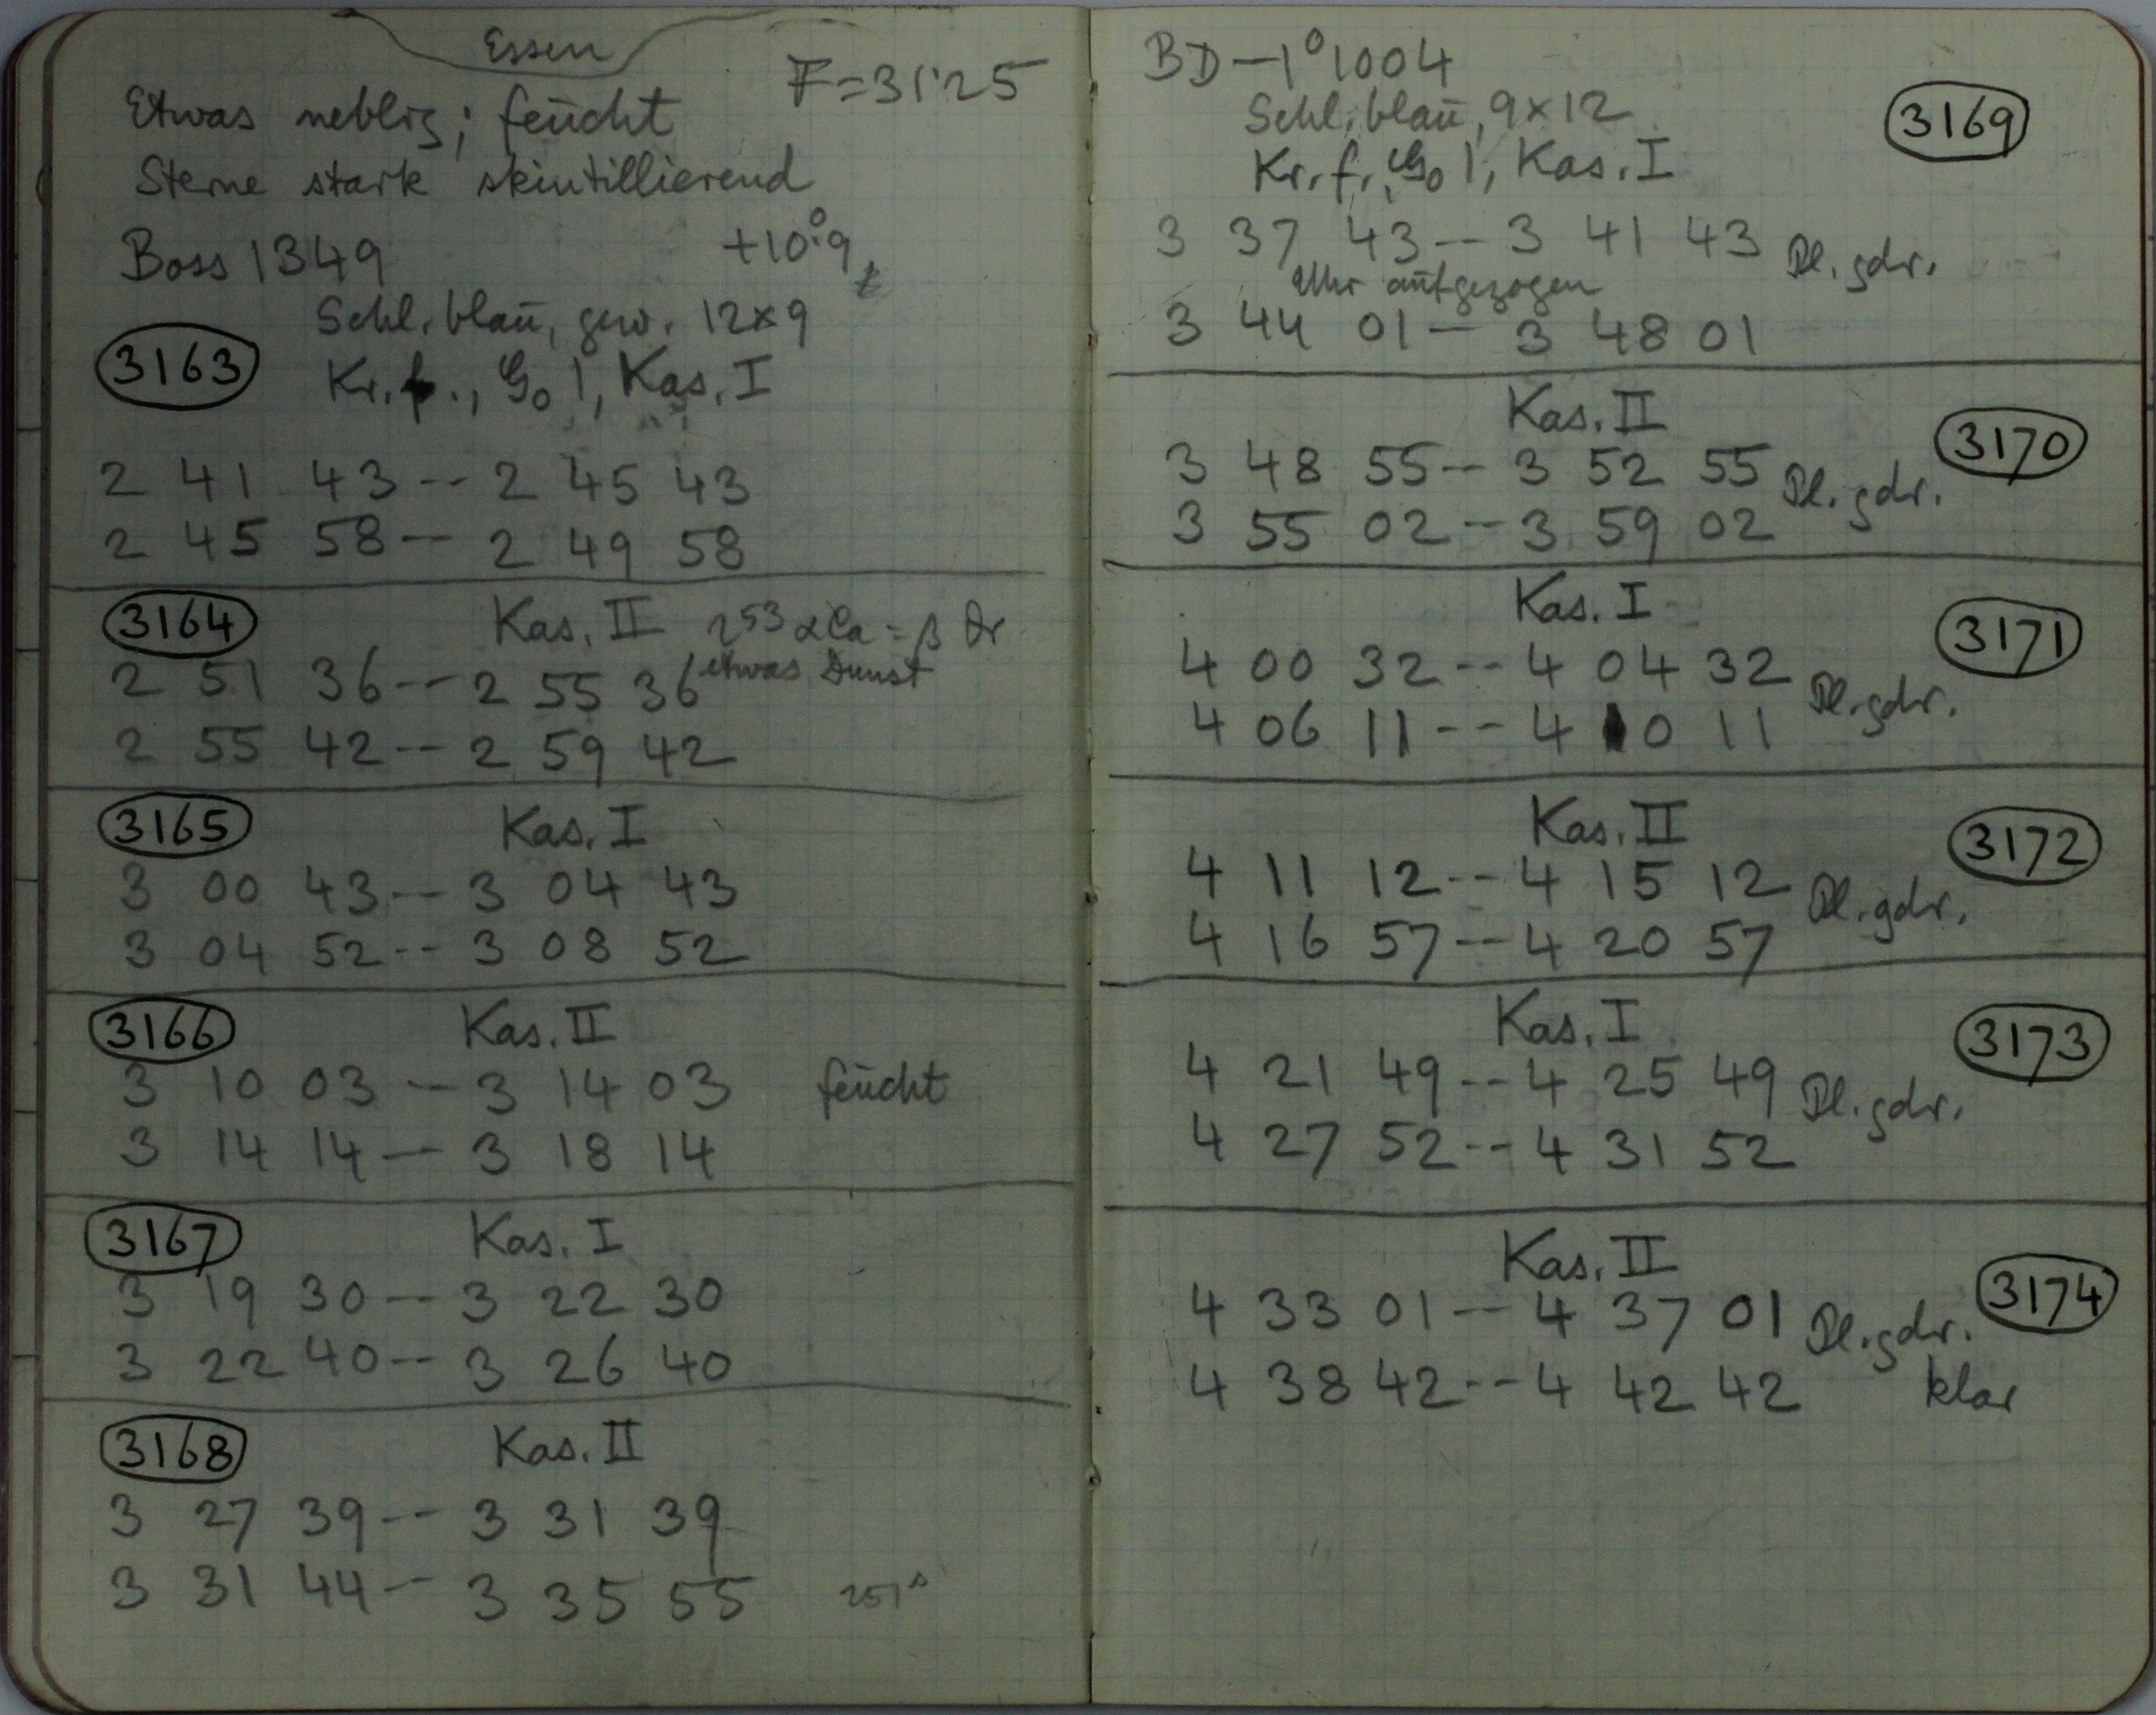 Essen
F=31'25
Etwas neblig; feucht
Sterne stark skintillierend
Boss 1349 +10°.9
Schl. blau, gew. 12×9
3163 Kr. f., Go 1, Kas. I
2 41 43 -- 2 45 43
2 45 58 -- 2 49 58
3164 Kas. II 2 53 αCa = β Or
etwas Dunst
2 51 36 -- 2 55 36
2 55 42 -- 2 59 42
3165 Kas. I
3 00 43 -- 3 04 43
3 04 52 -- 3 08 52
3166 Kas. II
3 10 03 -- 3 14 03 feucht
3 14 14 -- 3 18 14
3167 Kas. I
3 19 30 -- 3 22 30
3 22 40 -- 3 26 40
3168 Kas. II
3 27 39 -- 3 31 39
3 31 44 -- 3 35 55 251s
BD -1°1004
Schl. blau, 9×12
3169
Kr. f., Go 1, Kas. I
3 37 43 -- 3 41 43 Pl. gdr.
Uhr aufgezogen
3 44 01 -- 3 48 01
Kas. II
3170
3 48 55 -- 3 52 55 Pl. gdr.
3 55 02 -- 3 59 02
Kas. I
3171
4 00 32 -- 4 04 32 Pl. gdr.
4 06 11 -- 4 10 11
Kas. II
3172
4 11 12 -- 4 15 12 Pl. gdr.
4 16 57 -- 4 20 57
Kas. I
3173
4 21 49 -- 4 25 49 Pl. gdr.
4 27 52 -- 4 31 52
Kas. II
3174
4 33 01 -- 4 37 01 Pl. gdr.
4 38 42 -- 4 42 42 klar